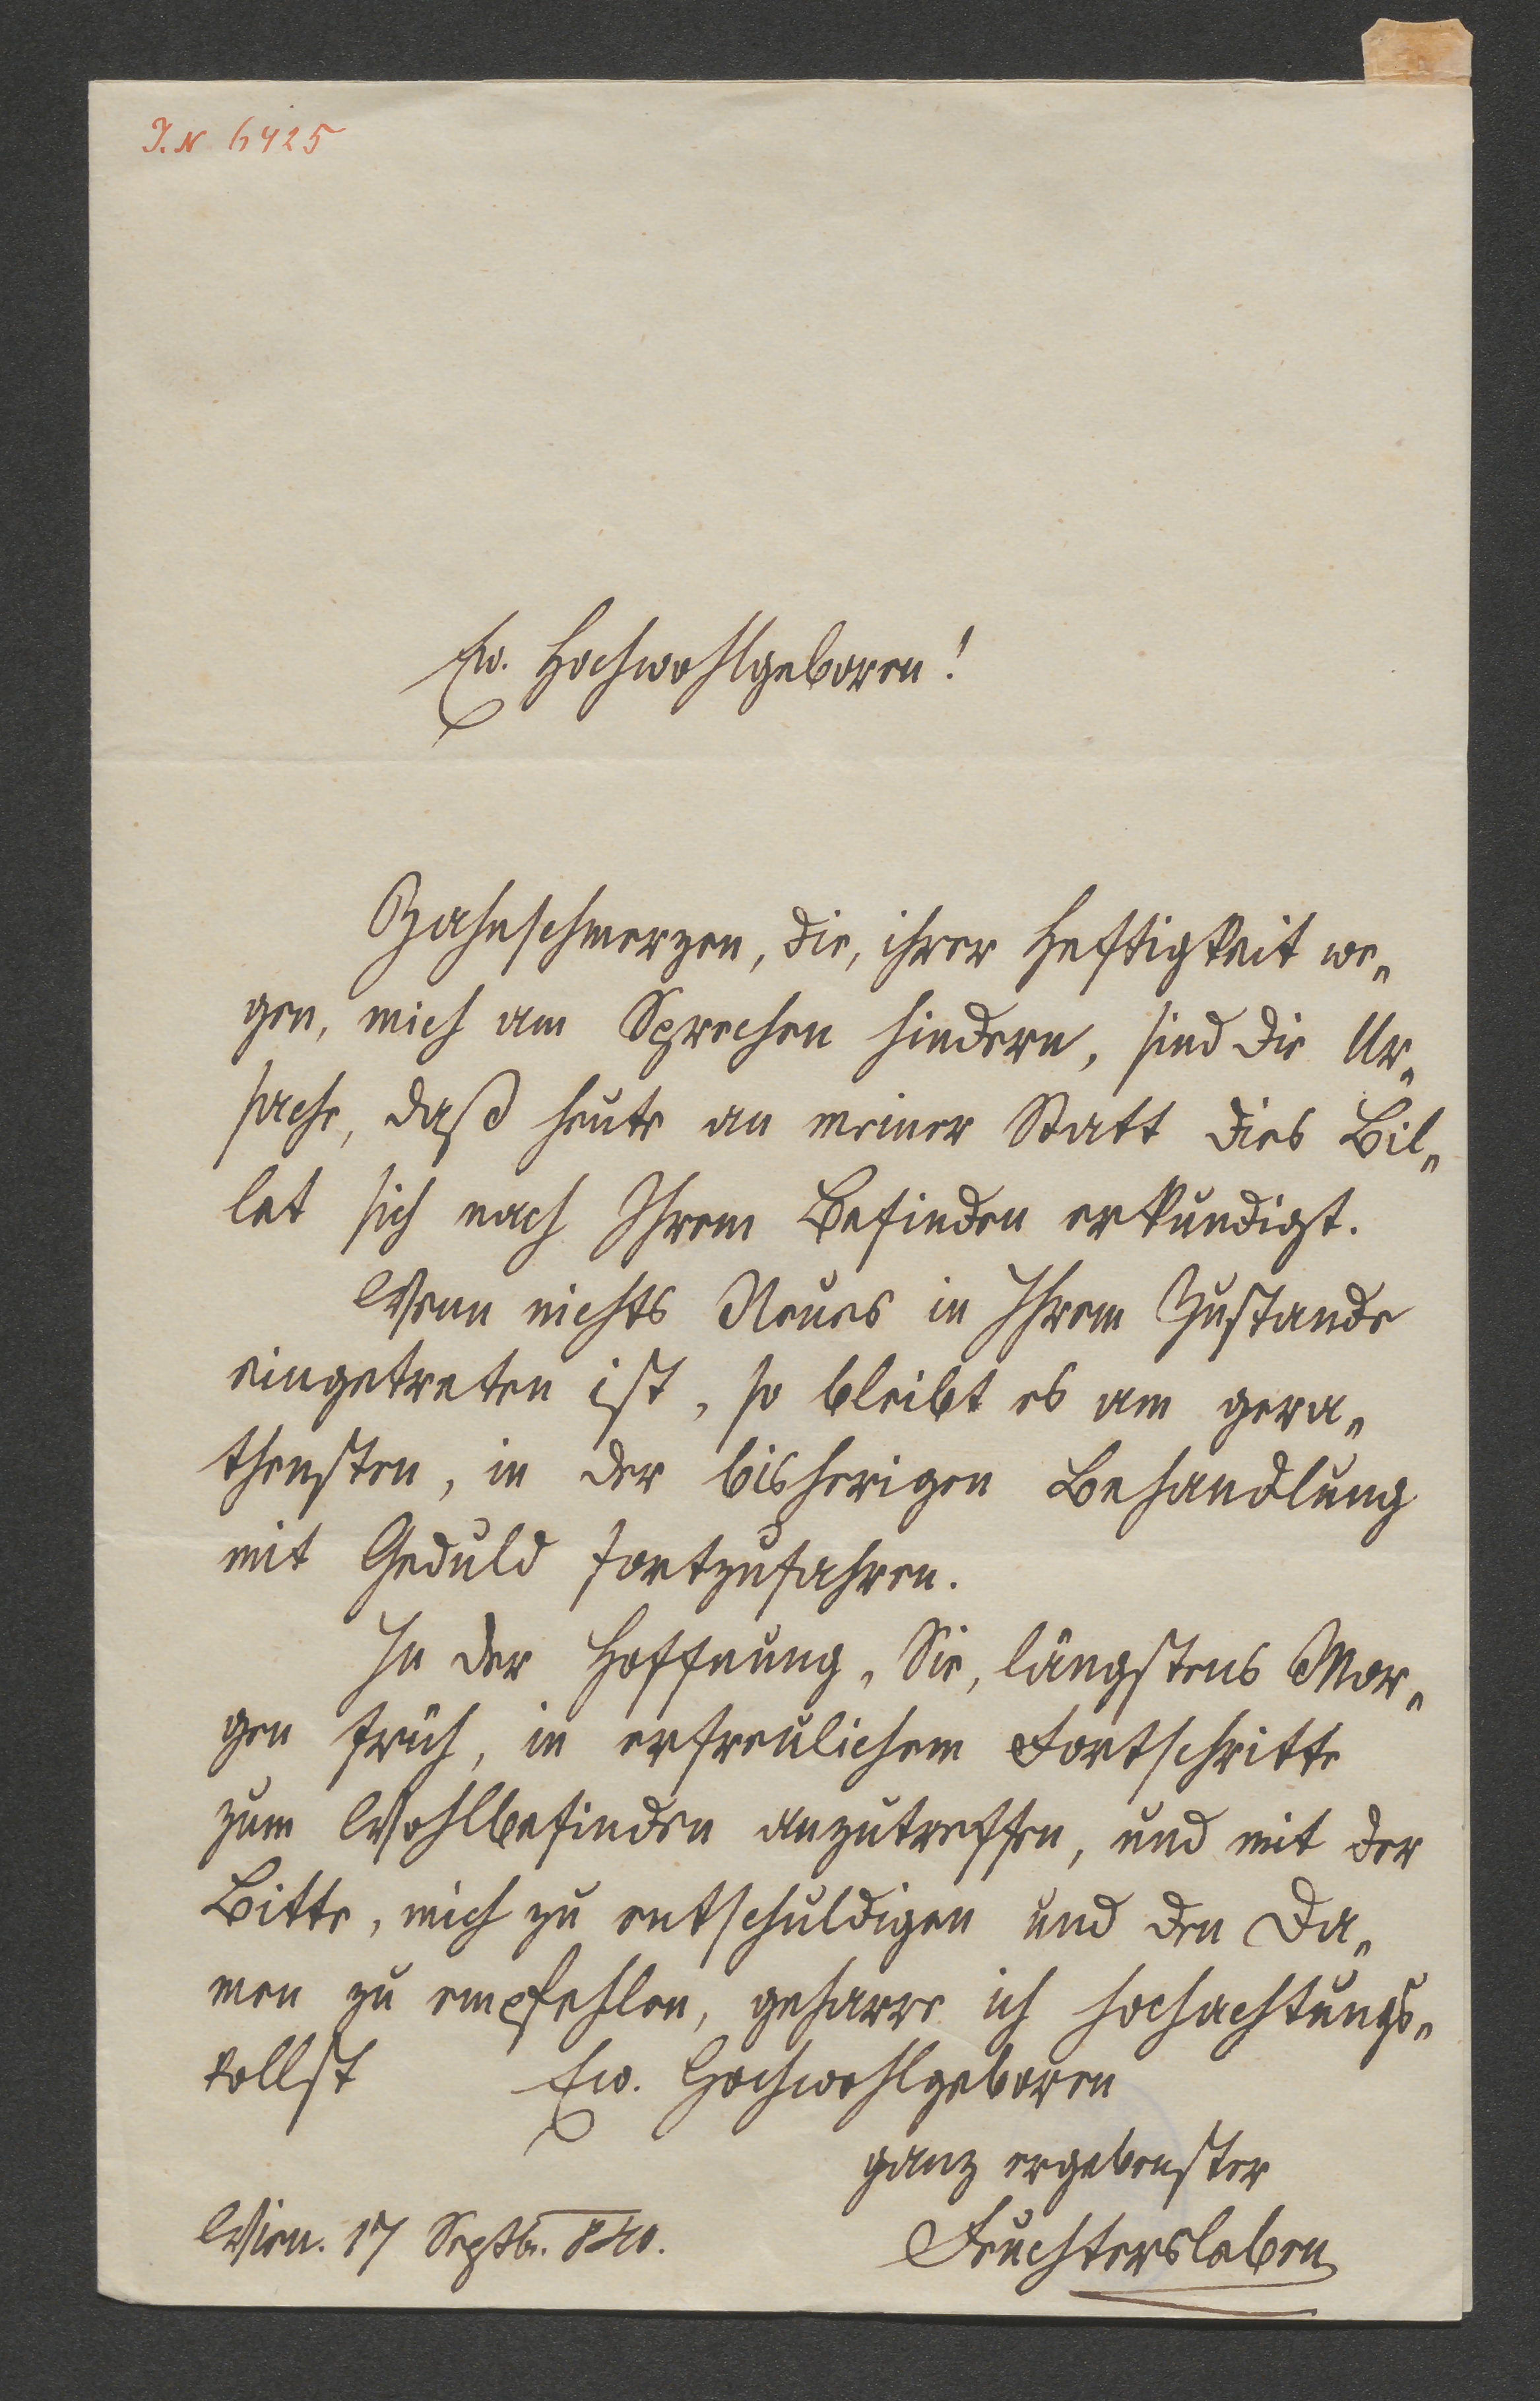 I.N 6425
Ew. Hochwohlgeboren!
Zahnschmerzen, die, ihrer Heftigkeit we„
gen, mich am Sprechen hindern, sind die Ur„
sache, daß heute an meiner Statt dies Bil„
let sich nach Ihrem Befinden erkundigt.
Wenn nichts Neues in Ihrem Zustande
eingetreten ist, so bleibt es am gera„
thensten, in der bisherigen Behandlung
mit Geduld fortzufahren.
In der Hoffnung, Sie, längstens Mor„
gen früh, in erfreulichem Fortschritte
zum Wohlbefinden anzutreffen, und mit der
Bitte, mich zu entschuldigen und den Da„
men zu empfehlen, geharre ich hochachtungs„
vollst Ew. Hochwohlgeboren
ganz ergebenster
Wien. 17 Septbr. 840. Feuchtersleben